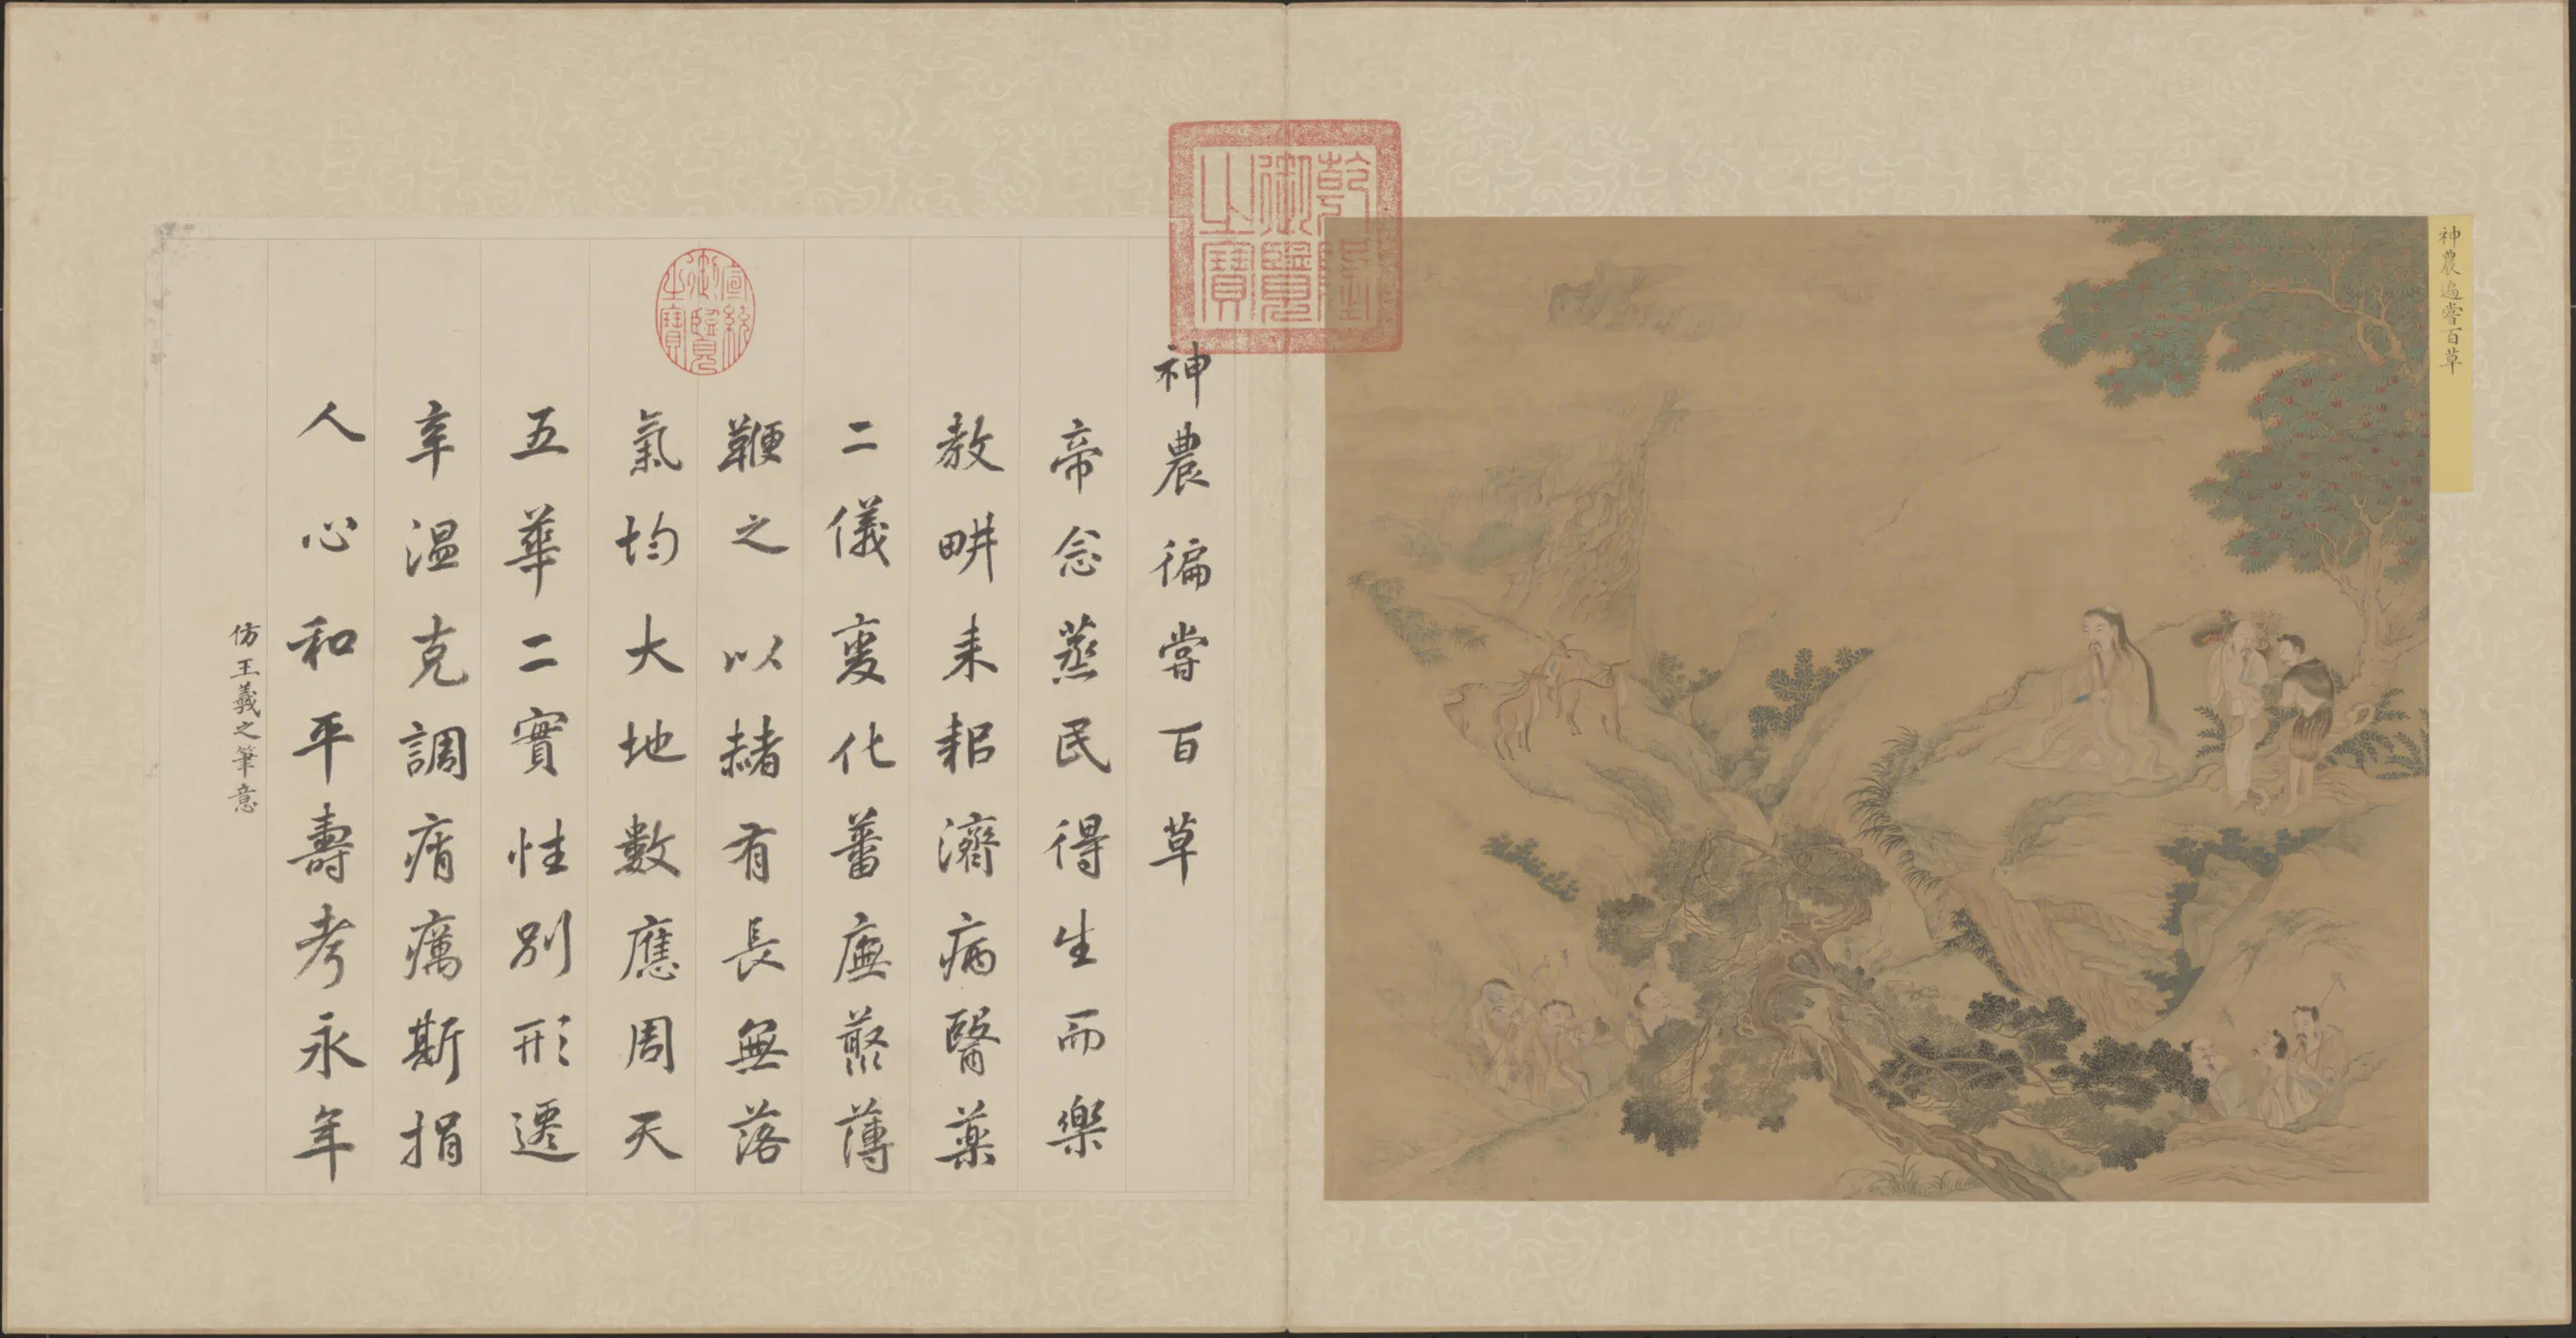 神農遍嘗百草
乾隆御覽之寶
神農徧嘗百草
帝念蒸民得生而樂
教畊耒耜濟病醫藥
二儀變化蕃廡叢薄
鞭之以赭有長無落
氣均大地數應周天
五華二實性別形遷
辛溫克調痟癘斯捐
人心和平壽考永年
仿王羲之筆意
宣統御覽之寶